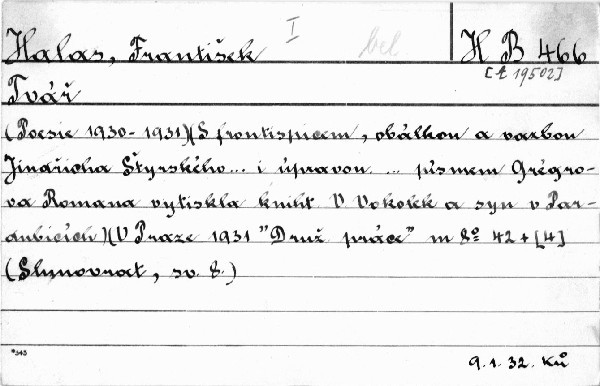 I
Halas, František bel. H B 466
[A 19502]
Tvář
(Poesie 1930-1931)(S frontispicem, obálkou a vazbou
Jindřicha Štyrského... i úpravou ... písmem Grégro-
va Romana vytiskla kniht V Vokolek a syn v Par-
dubicích)(V Praze 1931 "Druž. práce" m 8º 42 + [4]
(Slunovrat, sv. 8.)
*343
9. 1. 32. Ků